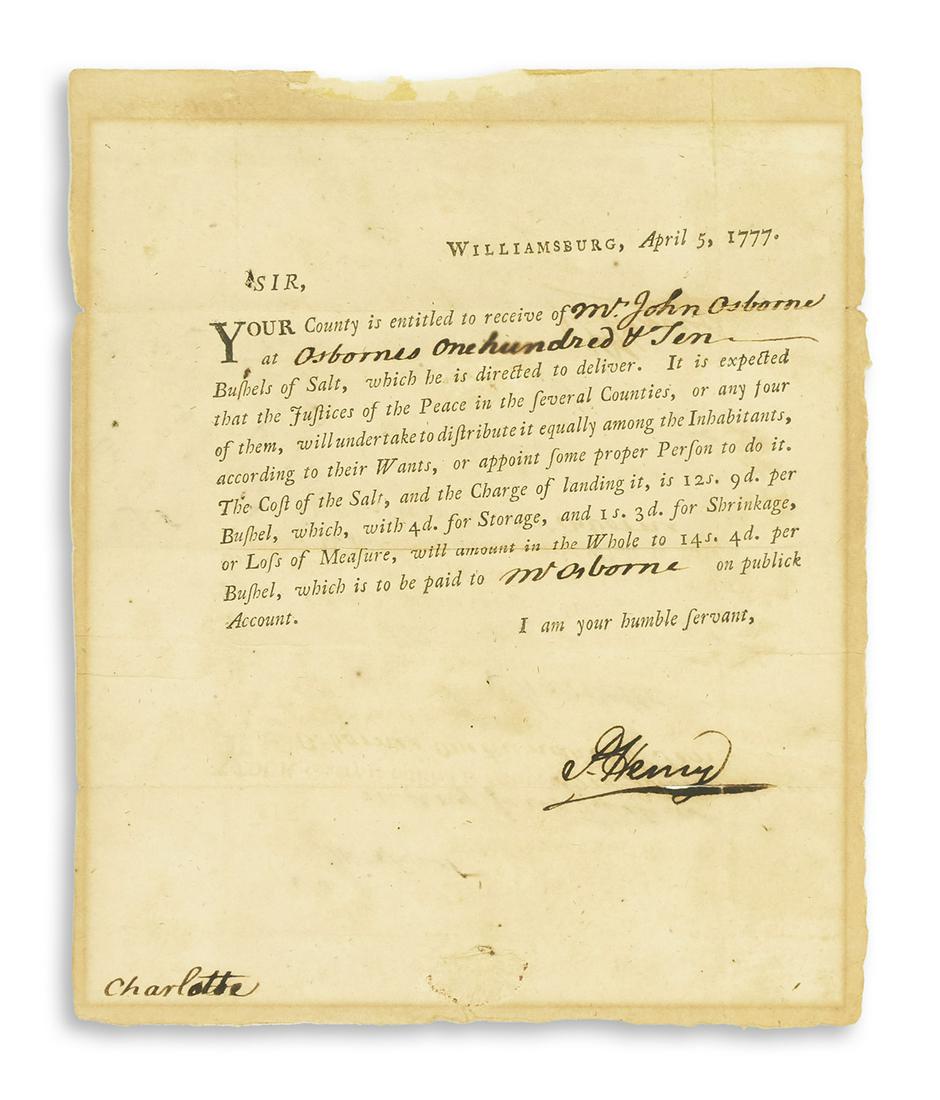 WILLIAMSBURG, April 5, 1777.
SIR,
YOUR County is entitled to receive of Mr. John Osborne
at Osbornes One hundred & Ten
Buſhels of Salt, which he is directed to deliver. It is expected
that the Juſtices of the Peace in the ſeveral Counties, or any four
of them, will undertake to diſtribute it equally among the Inhabitants,
according to their Wants, or appoint ſome proper Perſon to do it.
The Coſt of the Salt, and the Charge of landing it, is 12s. 9d. per
Buſhel, which, with 4d. for Storage, and 1s. 3d. for Shrinkage,
or Loſs of Meaſure, will amount in the Whole to 14s. 4d. per
Buſhel, which is to be paid to Mr Osborne on publick
Account.
I am your humble ſervant,
P. Henry
Charlotte